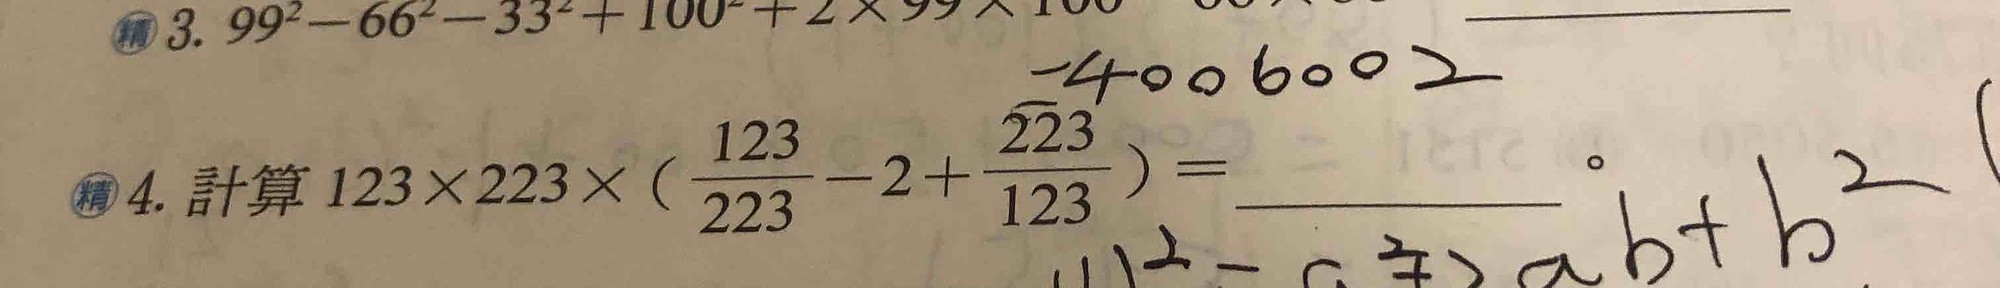 精 3. 99² − 66² − 33² + 100² + 2 × 99 × 100
−4006002
精 4. 計算 123 × 223 × ( 123/223 − 2 + 223/123 ) = ________ 。
ab + b²